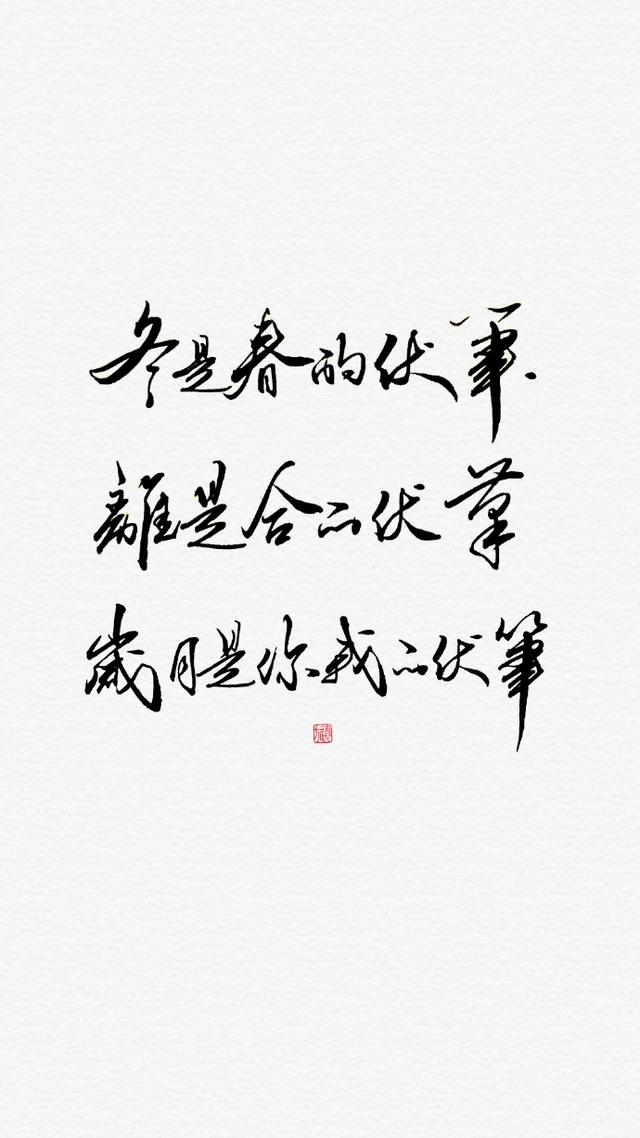 冬是春的伏筆
離是合的伏筆
歲月是你我的伏筆